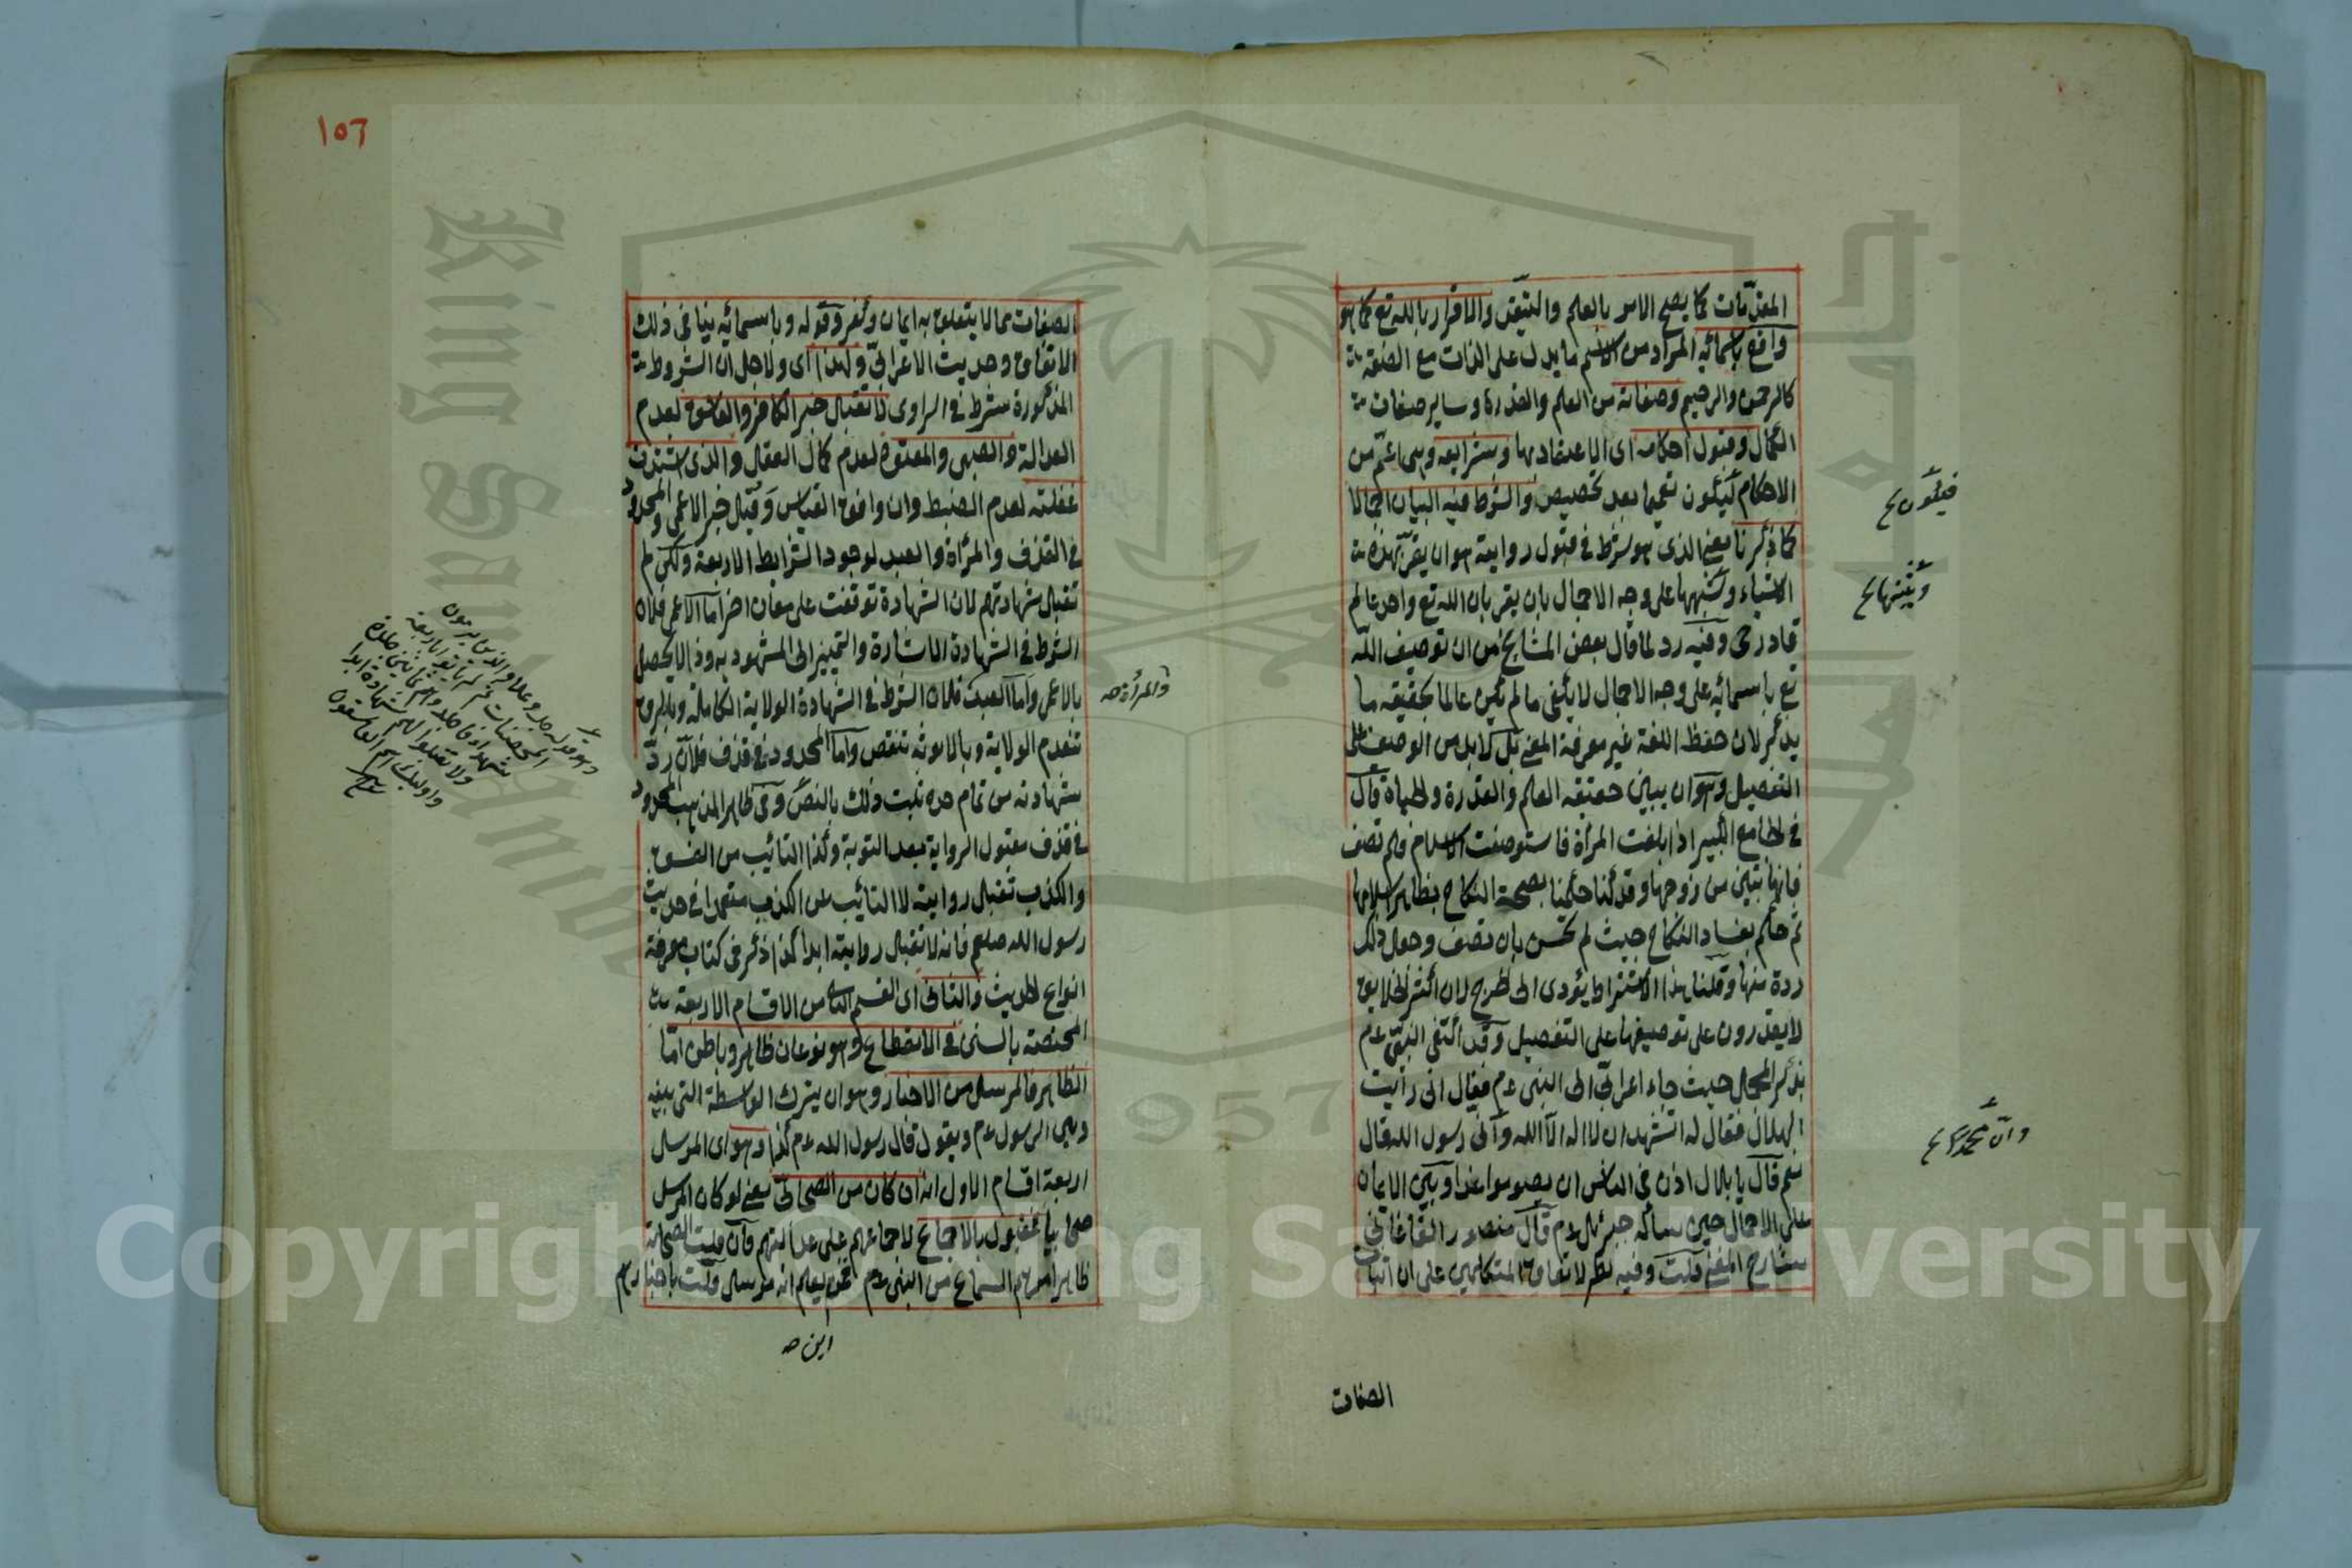 المعذبات كما يصح الامر بالعلم والتيقن والاقرار بالله تع كما هو
واقع باسمائه المراد من الاسم ما يدل على الذات مع الصفة
كالرحمن والرحيم وصفاته من العلم والقدرة وساير صفات
الكمال وقبول احكامه اى الاعتقاد بها وشرايعه وهى اعم من
الاحكام ليكون تعميما بعد تخصيص والشرط فيه البيان اجمالا
كما ذكرنا يعنى الذى هو شرط فى قبول روايته هو ان يقر بهذه
الاشياء و على وجه الاجمال بان يقر بان الله تع واحد عالم
قادر حى وفيه رد لما قال بعض المشايخ من ان توصيف الله
تع باسمائه على وجه الاجمال لا يكفى ما لم يكن عالما بحقيقة ما
يذكر لان حفظ اللغة غير معرفة المعنى بل لا بد من الوصف على
التفصيل وهو ان يبين حقيقة العلم والقدرة والحياة قال
فى الجامع الكبير اذا بلغت المرأة فاستوصفت الاسلام فلم تصف
فانها تبين من زوجها وقد كنا حكمنا بصحة النكاح بظاهر اسلامها
ثم حكم بفساد النكاح حيث لم تحسن بان تصف وجعل ذلك
ردة منها وقلنا هذا الاشتراط يؤدى الى الحرج لان اكثر الخلايق
لا يقدرون على توصيفها على التفصيل وقد اكتفى النبى عم
بذكر المجمل حيث جاء اعرابى الى النبى عم فقال انى رأيت
الهلال فقال له اتشهد ان لا اله الا الله وانى رسول الله قال
نعم قال يا بلال اذن فى الناس ان يصوموا غدا وبين الايمان
على الاجمال حين سأله جبرئيل عم قال منصور القاغانى
شارح المغنى قلت وفيه نظر لاتفاق المتكلمين على ان اثبات
فيكون
وان محمدا
الصفات
١٥٦
الصفات مما لا يتعلق به ايمان وكفر وقوله وباسمائه ينافى ذلك
الاتفاق وحديث الاعرابى ولهذا اى ولاجل ان الشروط
المذكورة شرط فى الراوى لا تقبل خبر الكافر والفاسق لعدم
العدالة والصبى والمعتوه لعدم كمال العقل والذى اشتدت
غفلته لعدم الضبط وان وافق القياس وقبل خبر الاعمى والمحدود
فى القذف والمرأة والعبد لوجود الشرايط الاربعة ولكن لم
تقبل شهادتهم لان الشهادة توقفت على معان اخر اما الاعمى فلان
الشرط فى الشهادة الاشارة والتمييز الى المشهود به وذا لا يحصل
بالاعمى واما العبد فلان الشرط فى الشهادة الولاية الكاملة وبالرق
تنعدم الولاية وبالانوثة تنقص واما المحدود فى قذف فلان رد
شهادته من تمام حده ثبت ذلك بالنص وفى ظاهر المذهب المحدود
فى قذف مقبول الرواية بعد التوبة وكذا التائب من الفسق
والكذب تقبل روايته لا التائب عن الكذب متعمدا فى حديث
رسول الله صلعم فانه لا تقبل روايته ابدا كذا ذكر فى كتاب معرفة
انواع الحديث والثانى اى القسم الثانى من الاقسام الاربعة
المختصة بالسنن فى الانقطاع وهو نوعان ظاهر وباطن اما
الظاهر فالمرسل من الاخبار وهو ان يترك الواسطة التى بينه
وبين الرسول عم ويقول قال رسول الله عم كذا وهو اى المرسل
اربعة اقسام الاول انه ان كان من الصحابى يعنى لو كان المرسل
صحابيا فمقبول بالاجماع لاجماعهم على عدالتهم فان قلت الصحابة
ظاهر امرهم السماع من النبى عم فمن يعلم انه مرسل قلت باخبارهم
والمرأة صح
وهو قوله جل وعلا والذين يرمون
المحصنات ثم لم يأتوا باربعة
شهداء فاجلدوهم ثمانين جلدة
ولا تقبلوا لهم شهادة ابدا
واولئك هم الفاسقون
اين صح
King Saud University
1957
Copyright © King Saud University